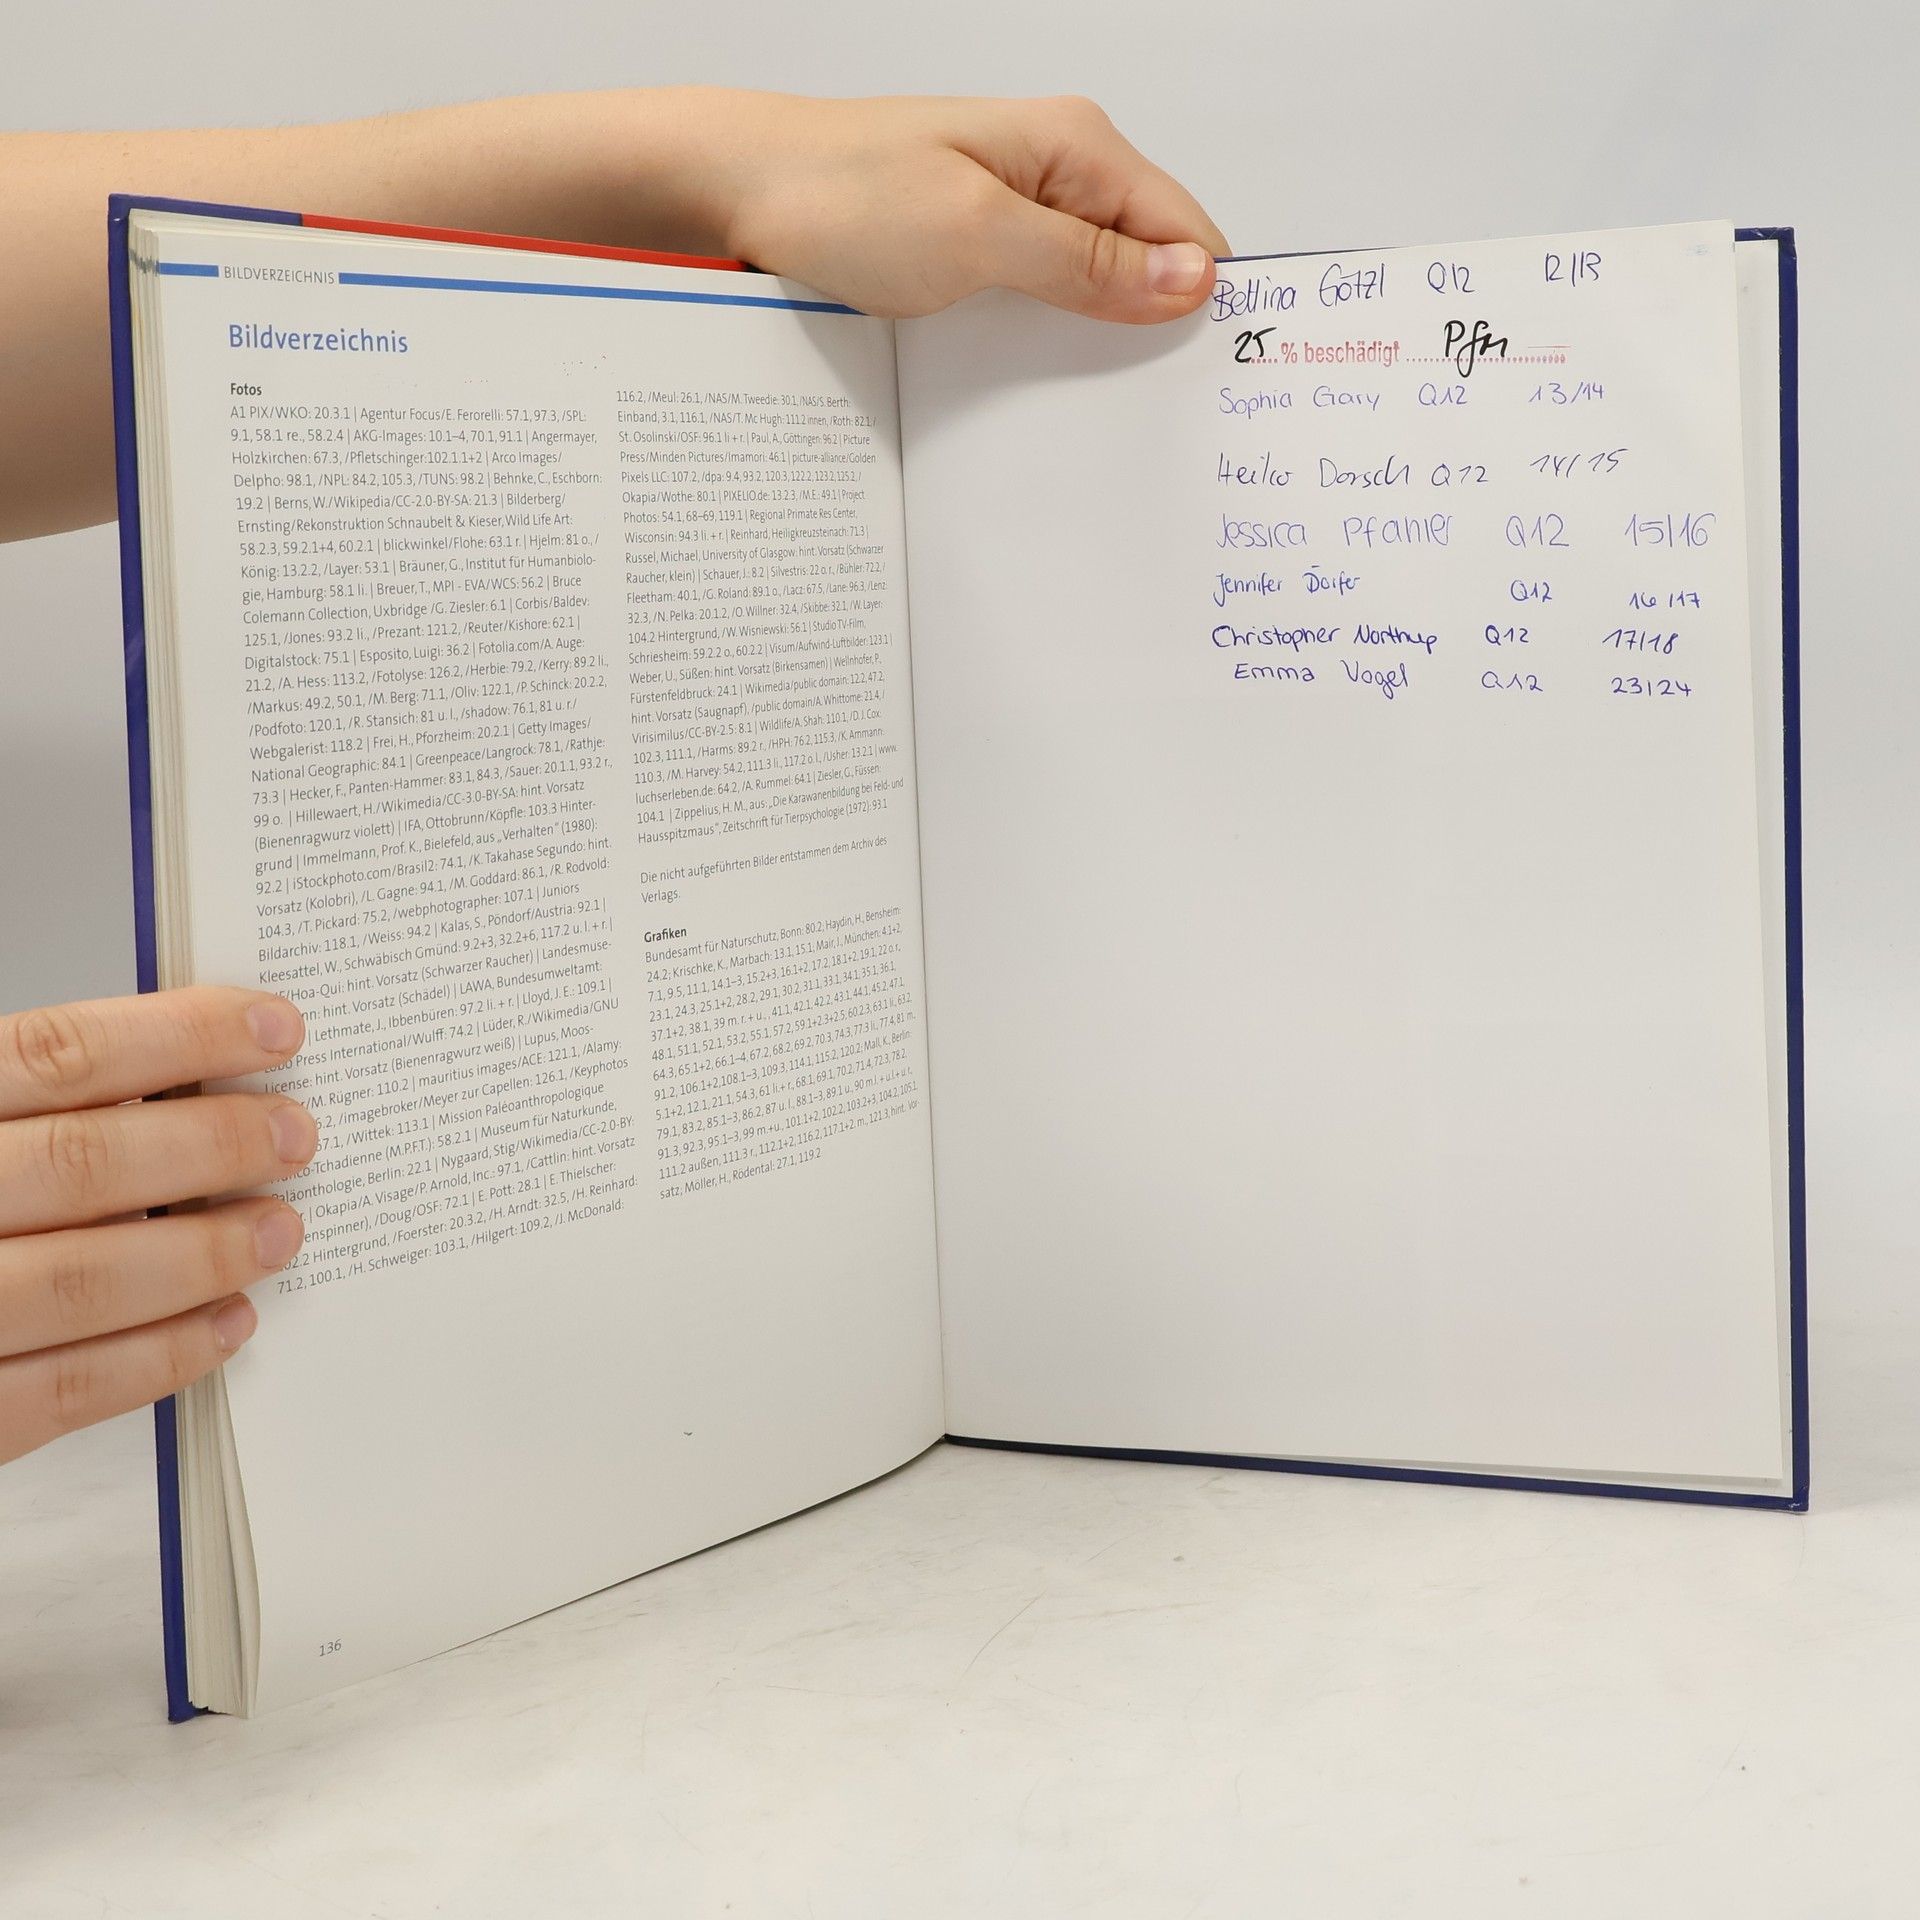 BILDVERZEICHNIS
Bildverzeichnis
Fotos
A1 PIX/WKO: 20.3.1 | Agentur Focus/E. Ferorelli: 57.1, 97.3, /SPL:
9.1, 58.1 re., 58.2.4 | AKG-Images: 10.1–4, 70.1, 91.1 | Angermayer,
Holzkirchen: 67.3, /Pfletschinger: 102.1.1+2 | Arco Images/
Delpho: 98.1, /NPL: 84.2, 105.3, /TUNS: 98.2 | Behnke, C., Eschborn:
19.2 | Berns, W./Wikipedia/CC-2.0-BY-SA: 21.3 | Bilderberg/
Ernsting/Rekonstruktion Schnaubelt & Kieser, Wild Life Art:
58.2.3, 59.2.1+4, 60.2.1 | blickwinkel/Flohe: 63.1 r. | Hjelm: 81 o., /
König: 13.2.2, /Layer: 53.1 | Bräuner, G., Institut für Humanbiolo-
gie, Hamburg: 58.1 li. | Breuer, T., MPI - EVA/WCS: 56.2 | Bruce
Colemann Collection, Uxbridge /G. Ziesler: 6.1 | Corbis/Baldev:
125.1, /Jones: 93.2 li., /Prezant: 121.2, /Reuter/Kishore: 62.1 |
Digitalstock: 75.1 | Esposito, Luigi: 36.2 | Fotolia.com/A. Auge:
21.2, /A. Hess: 113.2, /Fotolyse: 126.2, /Herbie: 79.2, /Kerry: 89.2 li.,
/Markus: 49.2, 50.1, /M. Berg: 71.1, /Oliv: 122.1, /P. Schinck: 20.2.2,
/Podfoto: 120.1, /R. Stansich: 81 u. l., /shadow: 76.1, 81 u. r./
Webgalerist: 118.2 | Frei, H., Pforzheim: 20.2.1 | Getty Images/
National Geographic: 84.1 | Greenpeace/Langrock: 78.1, /Rathje:
73.3 | Hecker, F., Panten-Hammer: 83.1, 84.3, /Sauer: 20.1.1, 93.2 r.,
99 o. | Hillewaert, H./Wikimedia/CC-3.0-BY-SA: hint. Vorsatz
(Bienenragwurz violett) | IFA, Ottobrunn/Köpfle: 103.3 Hinter-
grund | Immelmann, Prof. K., Bielefeld, aus „Verhalten“ (1980):
92.2 | iStockphoto.com/Brasil2: 74.1, /K. Takahase Segundo: hint.
Vorsatz (Kolobri), /L. Gagne: 94.1, /M. Goddard: 86.1, /R. Rodvold:
104.3, /T. Pickard: 75.2, /webphotographer: 107.1 | Juniors
Bildarchiv: 118.1, /Weiss: 94.2 | Kalas, S., Pöndorf/Austria: 92.1 |
Kleesattel, W., Schwäbisch Gmünd: 9.2+3, 32.2+6, 117.2 u. l. + r. |
/Hoa-Qui: hint. Vorsatz (Schwarzer Raucher) | Landesmuse-
hint. Vorsatz (Schädel) | LAWA, Bundesumweltamt:
| Lethmate, J., Ibbenbüren: 97.2 li. + r. | Lloyd, J. E.: 109.1 |
Press International/Wulff: 74.2 | Lüder, R./Wikimedia/GNU
License: hint. Vorsatz (Bienenragwurz weiß) | Lupus, Moos-
/M. Rügner: 110.2 | mauritius images/ACE: 121.1, /Alamy:
/imagebroker/Meyer zur Capellen: 126.1, /Keyphotos
/Wittek: 113.1 | Mission Paléoanthropologique
Tchadienne (M.P.F.T.): 58.2.1 | Museum für Naturkunde,
Paläonthologie, Berlin: 22.1 | Nygaard, Stig/Wikimedia/CC-2.0-BY:
| Okapia/A. Visage/P. Arnold, Inc.: 97.1, /Cattlin: hint. Vorsatz
/Doug/OSF: 72.1 | E. Pott: 28.1 | E. Thielscher:
Hintergrund, /Foerster: 20.3.2, /H. Arndt: 32.5, /H. Reinhard:
71.2, 100.1, /H. Schweiger: 103.1, /Hilgert: 109.2, /J. McDonald:
116.2, /Meul: 26.1, /NAS/M. Tweedie: 30.1, /NAS/S. Berth:
Einband, 3.1, 116.1, /NAS/T. Mc Hugh: 111.2 innen, /Roth: 82.1, /
St. Osolinski/OSF: 96.1 li + r. | Paul, A., Göttingen: 96.2 | Picture
Press/Minden Pictures/Imamori: 46.1 | picture-alliance/Golden
Pixels LLC: 107.2, /dpa: 9.4, 93.2, 120.3, 122.2, 123.2, 125.2, /
Okapia/Wothe: 80.1 | PIXELIO.de: 13.2.3, /M.E.: 49.1 | Project
Photos: 54.1, 68–69, 119.1 | Regional Primate Res Center,
Wisconsin: 94.3 li. + r. | Reinhard, Heiligkreuzsteinach: 71.3 |
Russel, Michael, University of Glasgow: hint. Vorsatz (Schwarzer
Raucher, klein) | Schauer, J.: 8.2 | Silvestris: 22 o. r., /Bühler: 72.2, /
Fleetham: 40.1, /G. Roland: 89.1 o., /Lacz: 67.5, /Lane: 96.3, /Lenz:
32.3, /N. Pelka: 20.1.2, /O. Willner: 32.4, /Skibbe: 32.1, /W. Layer:
104.2 Hintergrund, /W. Wisniewski: 56.1 | Studio TV-Film,
Schriesheim: 59.2.2 o., 60.2.2 | Visum/Aufwind-Luftbilder: 123.1 |
Weber, U., Süßen: hint. Vorsatz (Birkensamen) | Wellnhofer, P.,
Fürstenfeldbruck: 24.1 | Wikimedia/public domain: 12.2, 47.2,
hint. Vorsatz (Saugnapf), /public domain/A. Whittome: 21.4, /
Virisimilus/CC-BY-2.5: 8.1 | Wildlife/A. Shah: 110.1, /D. J. Cox:
102.3, 111.1, /Harms: 89.2 r., /HPH: 76.2, 115.3, /K. Ammann:
110.3, /M. Harvey: 54.2, 111.3 li., 117.2 o. l., /Usher: 13.2.1 | www.
luchserleben.de: 64.2, /A. Rummel: 64.1 | Ziesler, G., Füssen:
104.1 | Zippelius, H. M., aus: „Die Karawanenbildung bei Feld- und
Hausspitzmaus“, Zeitschrift für Tierpsychologie (1972): 93.1
Die nicht aufgeführten Bilder entstammen dem Archiv des
Verlags.
Grafiken
Bundesamt für Naturschutz, Bonn: 80.2; Haydin, H., Bensheim:
24.2; Krischke, K., Marbach: 13.1, 15.1; Mair, J., München: 4.1+2,
7.1, 9.5, 11.1, 14.1–3, 15.2+3, 16.1+2, 17.2, 18.1+2, 19.1, 22 o. r.,
23.1, 24.3, 25.1+2, 28.2, 29.1, 30.2, 31.1, 33.1, 34.1, 35.1, 36.1,
37.1+2, 38.1, 39 m. r. + u., 41.1, 42.1, 42.2, 43.1, 44.1, 45.2, 47.1,
48.1, 51.1, 52.1, 53.2, 55.1, 57.2, 59.1+2.3+2.5, 60.2.3, 63.1 li., 63.2,
64.3, 65.1+2, 66.1–4, 67.2, 68.2, 69.2, 70.3, 74.3, 77.3 li., 77.4, 81 m.,
91.2, 106.1+2, 108.1–3, 109.3, 114.1, 115.2, 120.2; Mall, K., Berlin:
5.1+2, 12.1, 21.1, 54.3, 61 li. + r., 68.1, 69.1, 70.2, 71.4, 72.3, 78.2,
79.1, 83.2, 85.1–3, 86.2, 87 u. l., 88.1–3, 89.1 u., 90 m.l. + u.l + u. r.,
91.3, 92.3, 95.1–3, 99 m.+u., 101.1+2, 102.2, 103.2+3, 104.2, 105.1,
111.2 außen, 111.3 r., 112.1+2, 116.2, 117.1+2. m., 121.3, hint. Vor-
satz; Möller, H., Rödental: 27.1, 119.2
136
Bettina Götzl Q12 12/13
25 % beschädigt
Sophia Gary Q12 13/14
Heiko Dorsch Q12 14/15
Jessica Pfanler Q12 15/16
Jennifer Q12 16/17
Christopher Northup Q12 17/18
Emma Vogel Q12 23/24